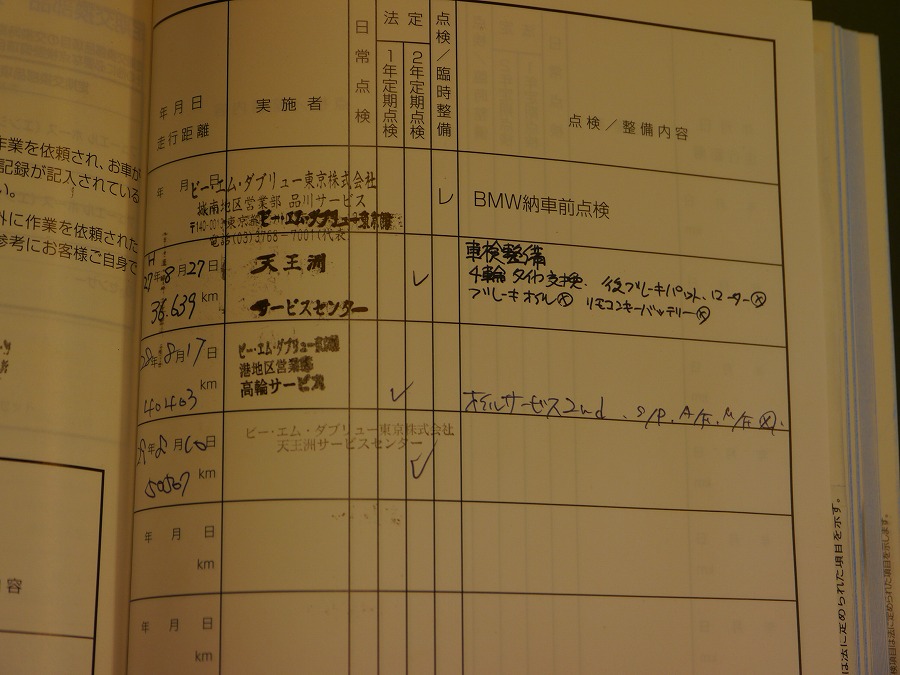 作業を依頼され、お車が
記録が記入されている
い。
外に作業を依頼された
参考にお客様ご自身で
容
年月日
走行距離
実施者
日常点検
法定
1年定期点検
2年定期点検
点検/臨時整備
点検/整備内容
年 月 日
ビー・エム・ダブリュー東京株式会社
城南地区営業部 品川サービス
ビー・エム・ダブリュー東京
電話(03)3768-7001(代表
レ
BMW納車前点検
H
27年8月27日
36.639 km
天王洲
サービスセンター
車検整備
4輪タイヤ交換. 後ブレーキパット、ローターⓍ
ブレーキオイルⓍ リモコンキーバッテリーⓍ
28年8月17日
40403 km
ビー・エム・ダブリュー東京
港地区営業部
高輪サービス
オイルサービス2nd 、S/P, A/F, M/F Ⓧ.
年8月10日
50567 km
ビー・エム・ダブリュー東京株式会社
天王洲サービスセンター
年 月 日
km
年 月 日
km
は法に定められた項目を示す。
検項目は法に定められた項目を示します。